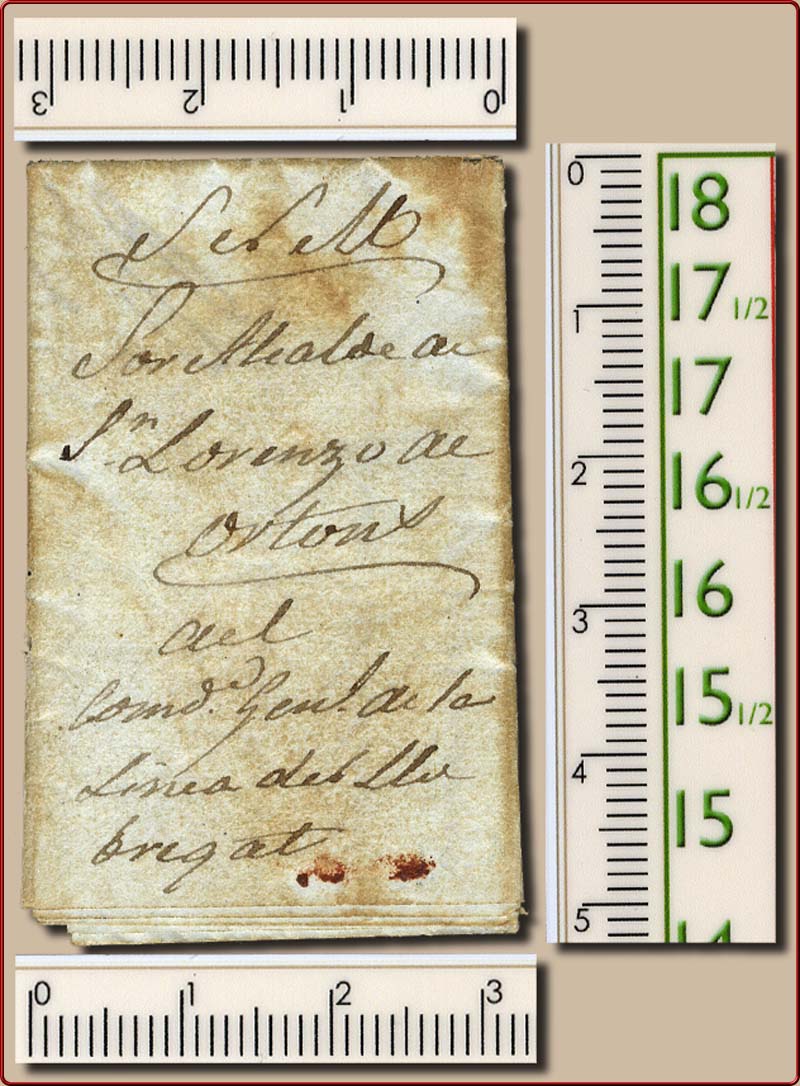 3 2 1 0
S del M
Sor Alcalde de
Sn. Lorenzo de
Ortons
del
Comd.e Genl. de la
Linea del Llo
bregat
0 1 2 3 4 5
18
17 1/2
17
16 1/2
16
15 1/2
15
14
0 1 2 3